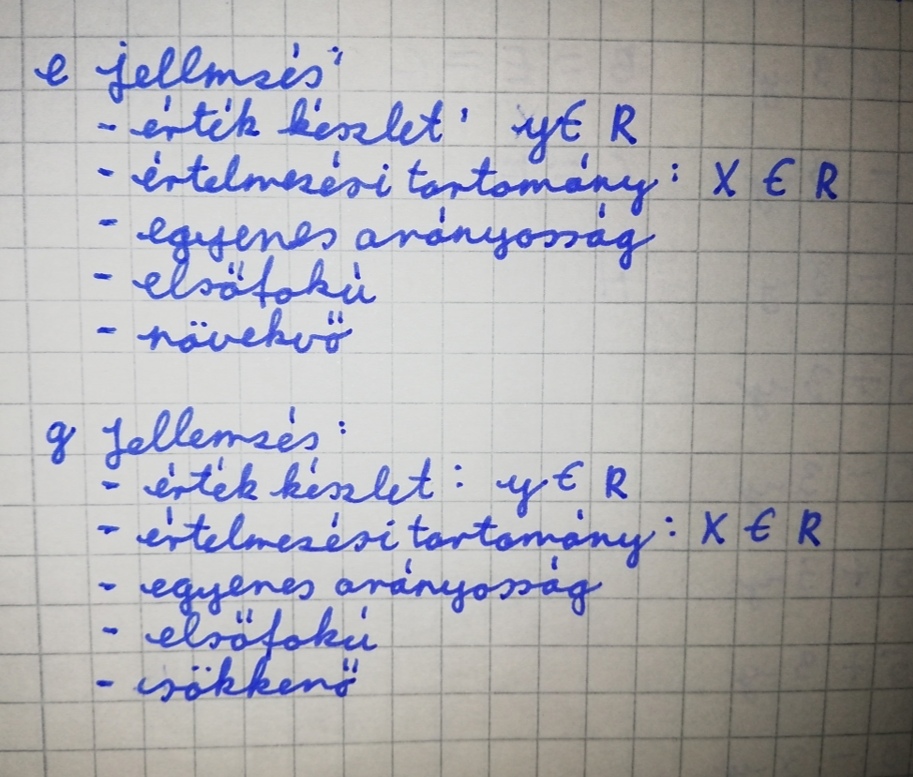 e jellmzés:
- érték készlet: y € R
- értelmezési tartomány: X € R
- egyenes arányosság
- elsőfokú
- növekvő
g Jellemzés:
- érték készlet: y € R
- értelmezési tartomány: X € R
- egyenes arányosság
- elsőfokú
- csökkenő